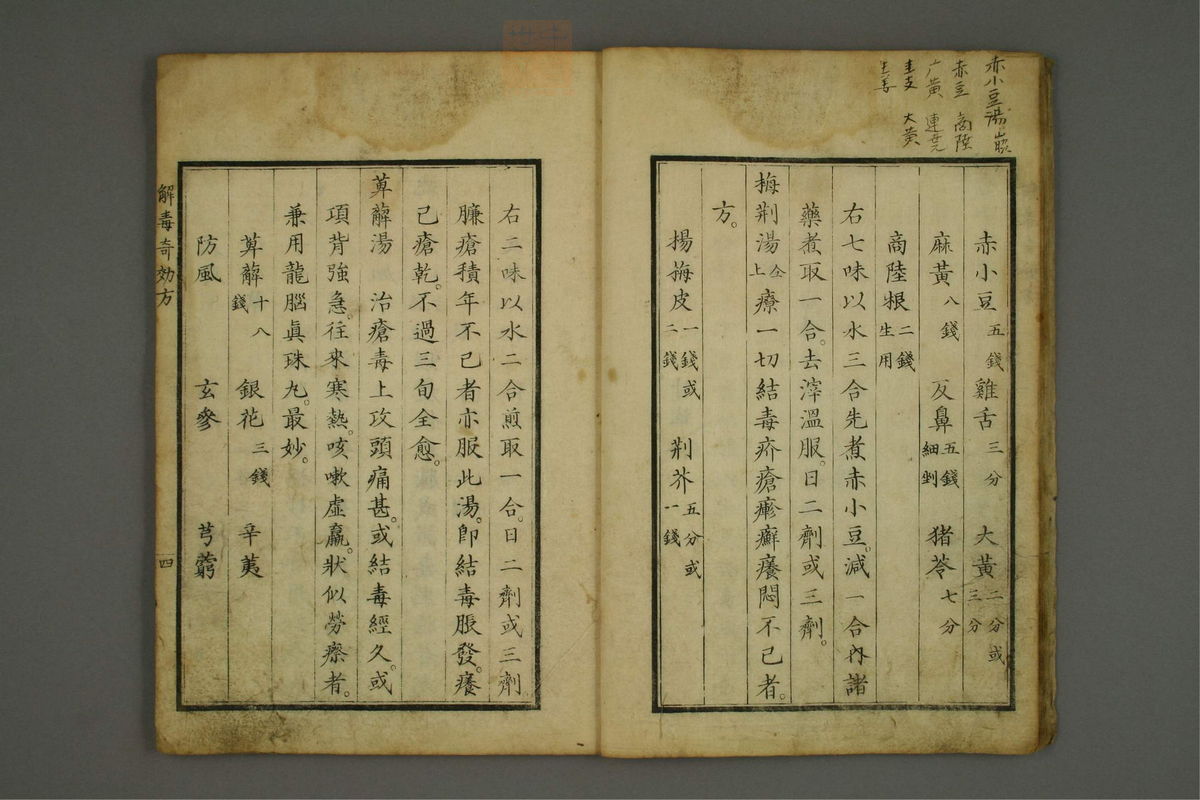 赤小豆湯
赤豆 商陸
黃 連
大黃
赤小豆五錢 雞舌三分 大黃二分或三分
麻黃八錢 反鼻五錢細剉 猪苓七分
商陸根二錢生用
右七味以水三合先煮赤小豆。減一合內諸
藥煮取一合。去滓溫服。日二劑或三劑。
梅荆湯仝上療一切結毒疥瘡瘮癬癢悶不已者。
方。
揚梅皮一錢或二錢 荆芥五分或一錢
右二味以水二合煎取一合。日二劑或三劑
臁瘡積年不已者亦服此湯。卽結毒脹發。癢
已瘡乾。不過三旬全愈。
萆薢湯 治瘡毒上攻頭痛甚。或結毒經久。或
項背強急。往來寒熱。咳嗽虛羸。狀似勞瘵者。
兼用龍腦眞珠丸。最妙。
萆薢十八錢 銀花三錢 辛夷
防風 玄參 芎藭
解毒奇効方
四